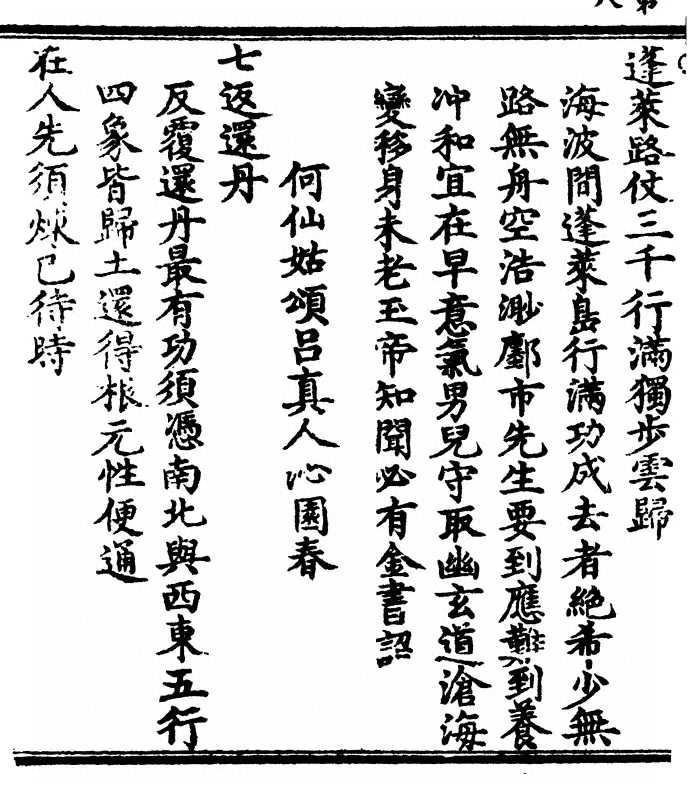 蓬萊路仗三千行滿獨步雲歸
海波間蓬萊島行滿功成去者絶希少無
路無舟空浩渺鄽市先生要到應難到養
冲和宜在早意氣男兒守取幽玄道滄海
變移身未老玉帝知聞必有金書詔
何仙姑頌吕真人沁園春
七返還丹
反覆還丹最有功須憑南北與西東五行
四象皆歸土還得根元性便通
在人先須煉已待時